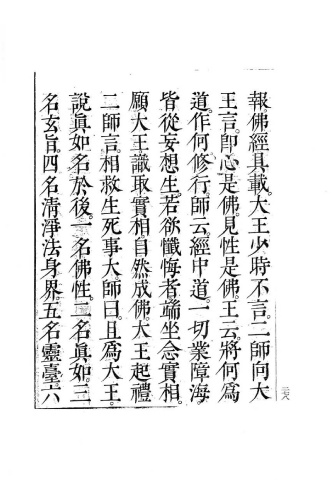 報佛經具載。大王少時不言。二師向大
王言。卽心是佛。見性是佛。王云。將何爲
道。作何修行。師云。經中道。一切業障海
皆從妄想生。若欲懺悔者。端坐念實相。
願大王識取實相。自然成佛。大王起禮
二師言。相救生死事大。師曰。且爲大王。
說眞如名於後。一名佛性。二名眞如。三
名玄旨。四名淸淨法身界。五名靈臺。六